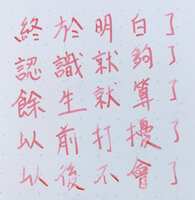 終於明白了
認識就夠了
餘生就算了
以前打擾了
以後不會了